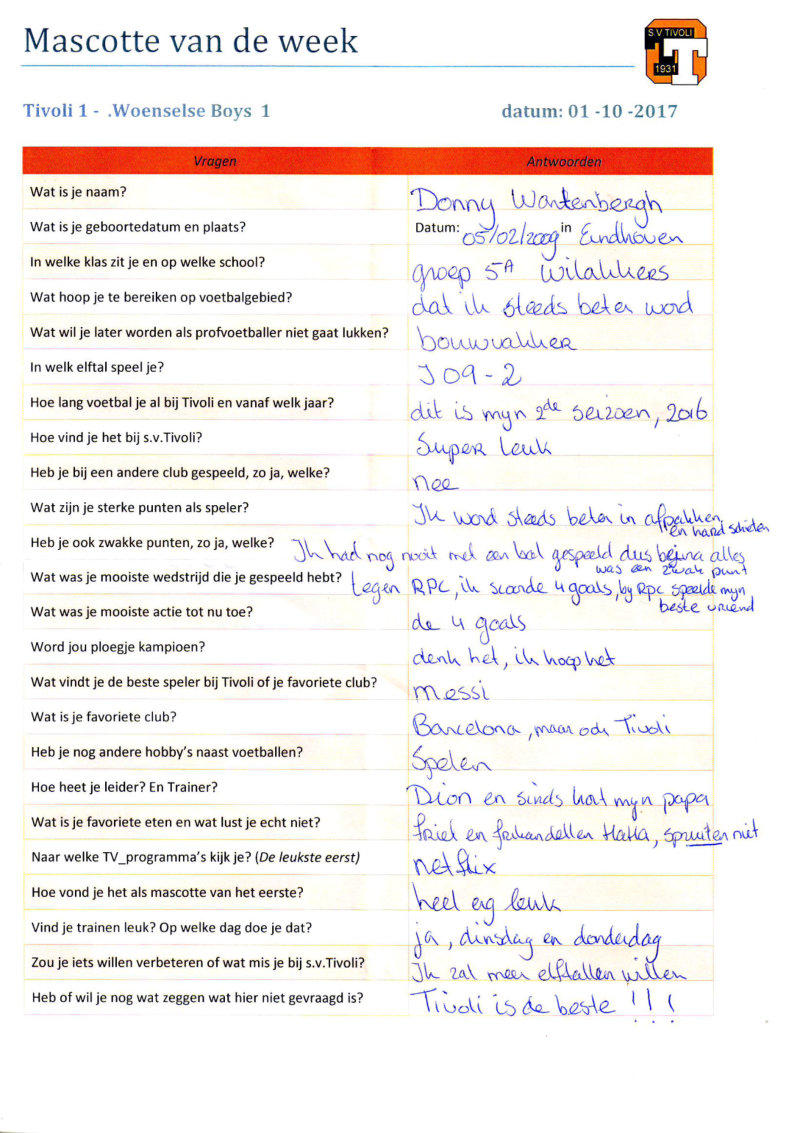 Mascotte van de week
S.V TIVOLI
1931
Tivoli 1 - .Woenselse Boys 1 datum: 01 -10 -2017
Vragen Antwoorden
Wat is je naam? Donny Wartenbergh
Wat is je geboortedatum en plaats? Datum: 05/02/2009 in Eindhoven
In welke klas zit je en op welke school? groep 5A Wilakkers
Wat hoop je te bereiken op voetbalgebied? dat ik steeds beter word
Wat wil je later worden als profvoetballer niet gaat lukken? bouwvakker
In welk elftal speel je? JO9-2
Hoe lang voetbal je al bij Tivoli en vanaf welk jaar? dit is myn 2de seizoen, 2016
Hoe vind je het bij s.v.Tivoli? Super leuk
Heb je bij een andere club gespeeld, zo ja, welke? nee
Wat zijn je sterke punten als speler? Ik word steeds beter in afpakken
en hard schieten
Heb je ook zwakke punten, zo ja, welke? Ik had nog nooit met een bal gespeeld dus bejna alles
was een zwak punt
Wat was je mooiste wedstrijd die je gespeeld hebt? tegen RPC, ik scoorde 4 goals, by Rpc speelde myn
beste vriend
Wat was je mooiste actie tot nu toe? de 4 goals
Word jou ploegje kampioen? denk het, ik hoop het
Wat vindt je de beste speler bij Tivoli of je favoriete club? messi
Wat is je favoriete club? Barcelona, maar ook Tivoli
Heb je nog andere hobby's naast voetballen? Spelen
Hoe heet je leider? En Trainer? Dion en sinds kort myn papa
Wat is je favoriete eten en wat lust je echt niet? friet en frikandellen HaHa, spruiten niet
Naar welke TV_programma's kijk je? (De leukste eerst) netflix
Hoe vond je het als mascotte van het eerste? heel erg leuk
Vind je trainen leuk? Op welke dag doe je dat? ja, dinsdag en donderdag
Zou je iets willen verbeteren of wat mis je bij s.v.Tivoli? Ik zal meer elftallen willen
Heb of wil je nog wat zeggen wat hier niet gevraagd is? Tivoli is de beste !!!